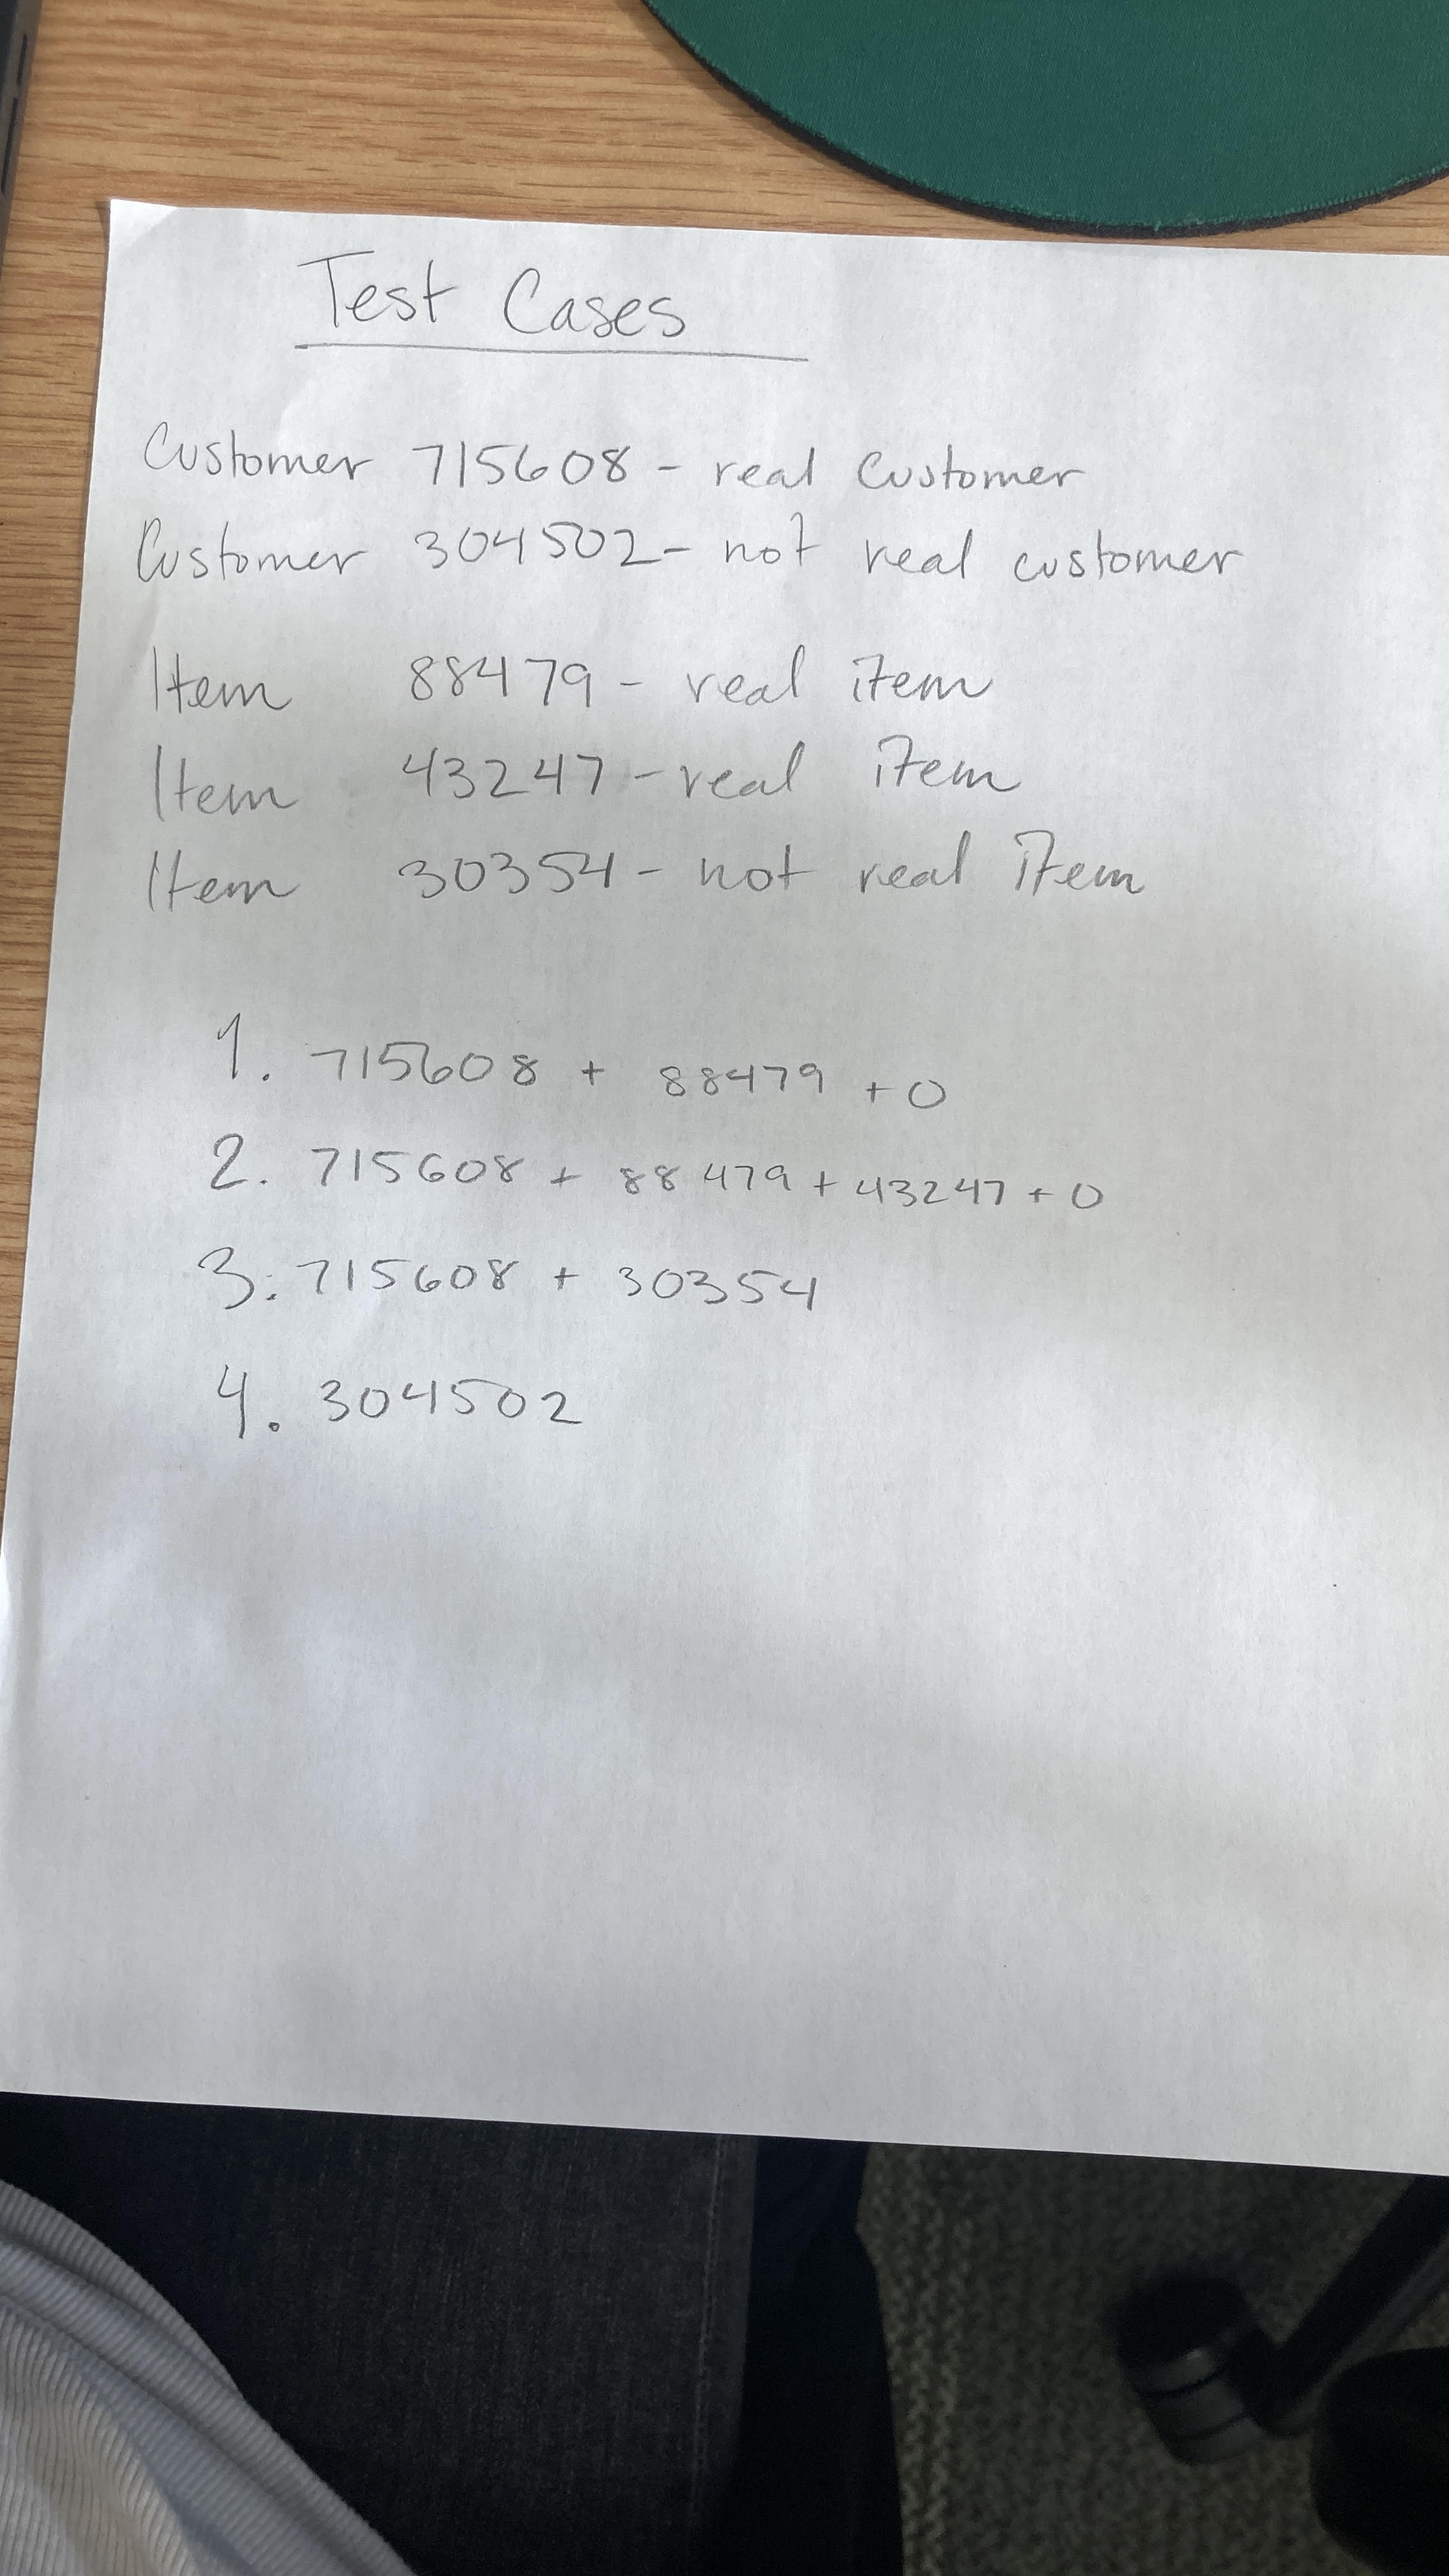 Test Cases
Customer 715608 - real customer
Customer 304502 - not real customer
Item 88479 - real item
Item 43247 - real item
Item 30354 - not real item
1. 715608 + 88479 + 0
2. 715608 + 88479 + 43247 + 0
3. 715608 + 30354
4. 304502